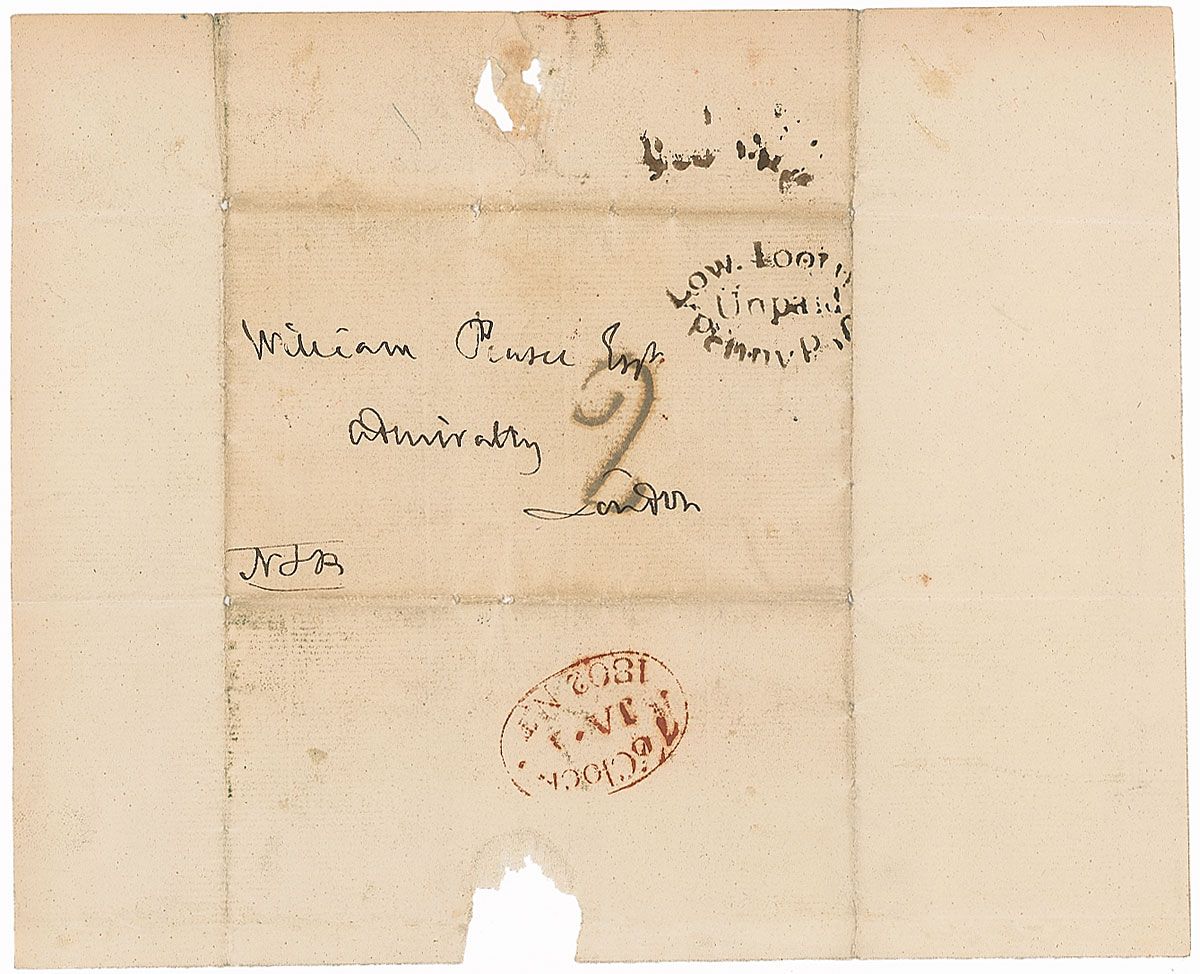 Low. Tooti
Unpaid
Penny P.
William Pearce Esqr.
2
Admiralty
London
N & B
7 o'Clock
JA. 1
1802 NT